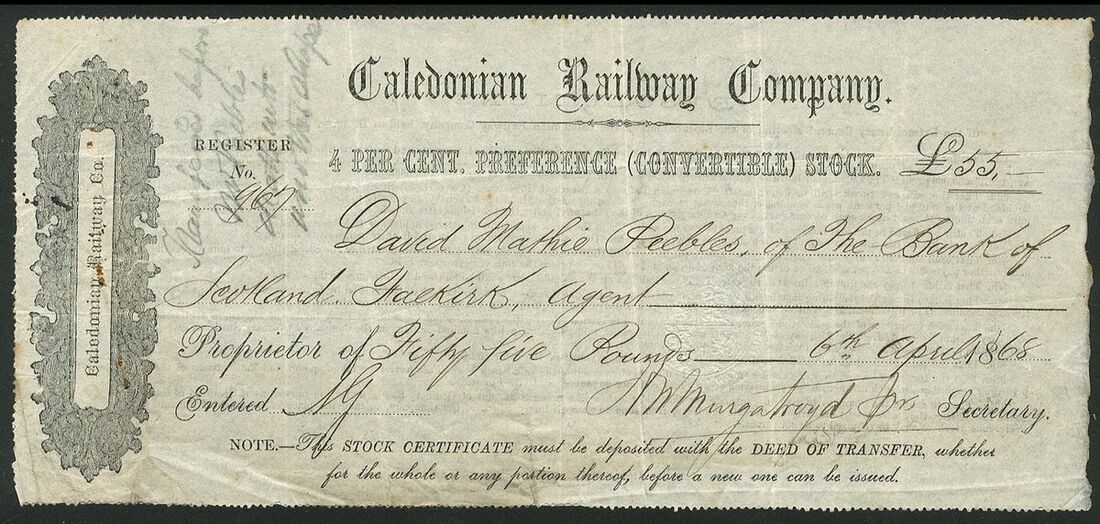 Caledonian Railway Company.
REGISTER
No.
967
4 PER CENT. PREFERENCE (CONVERTIBLE) STOCK. £55,—
David Mathie Peebles, of The Bank of
Scotland Falkirk, Agent
Proprietor of Fifty five Pounds 6th April 1868
Entered
Murgatroyd Secretary.
NOTE.—This STOCK CERTIFICATE must be deposited with the DEED OF TRANSFER, whether
for the whole or any portion thereof, before a new one can be issued.
Caledonian Railway Co.